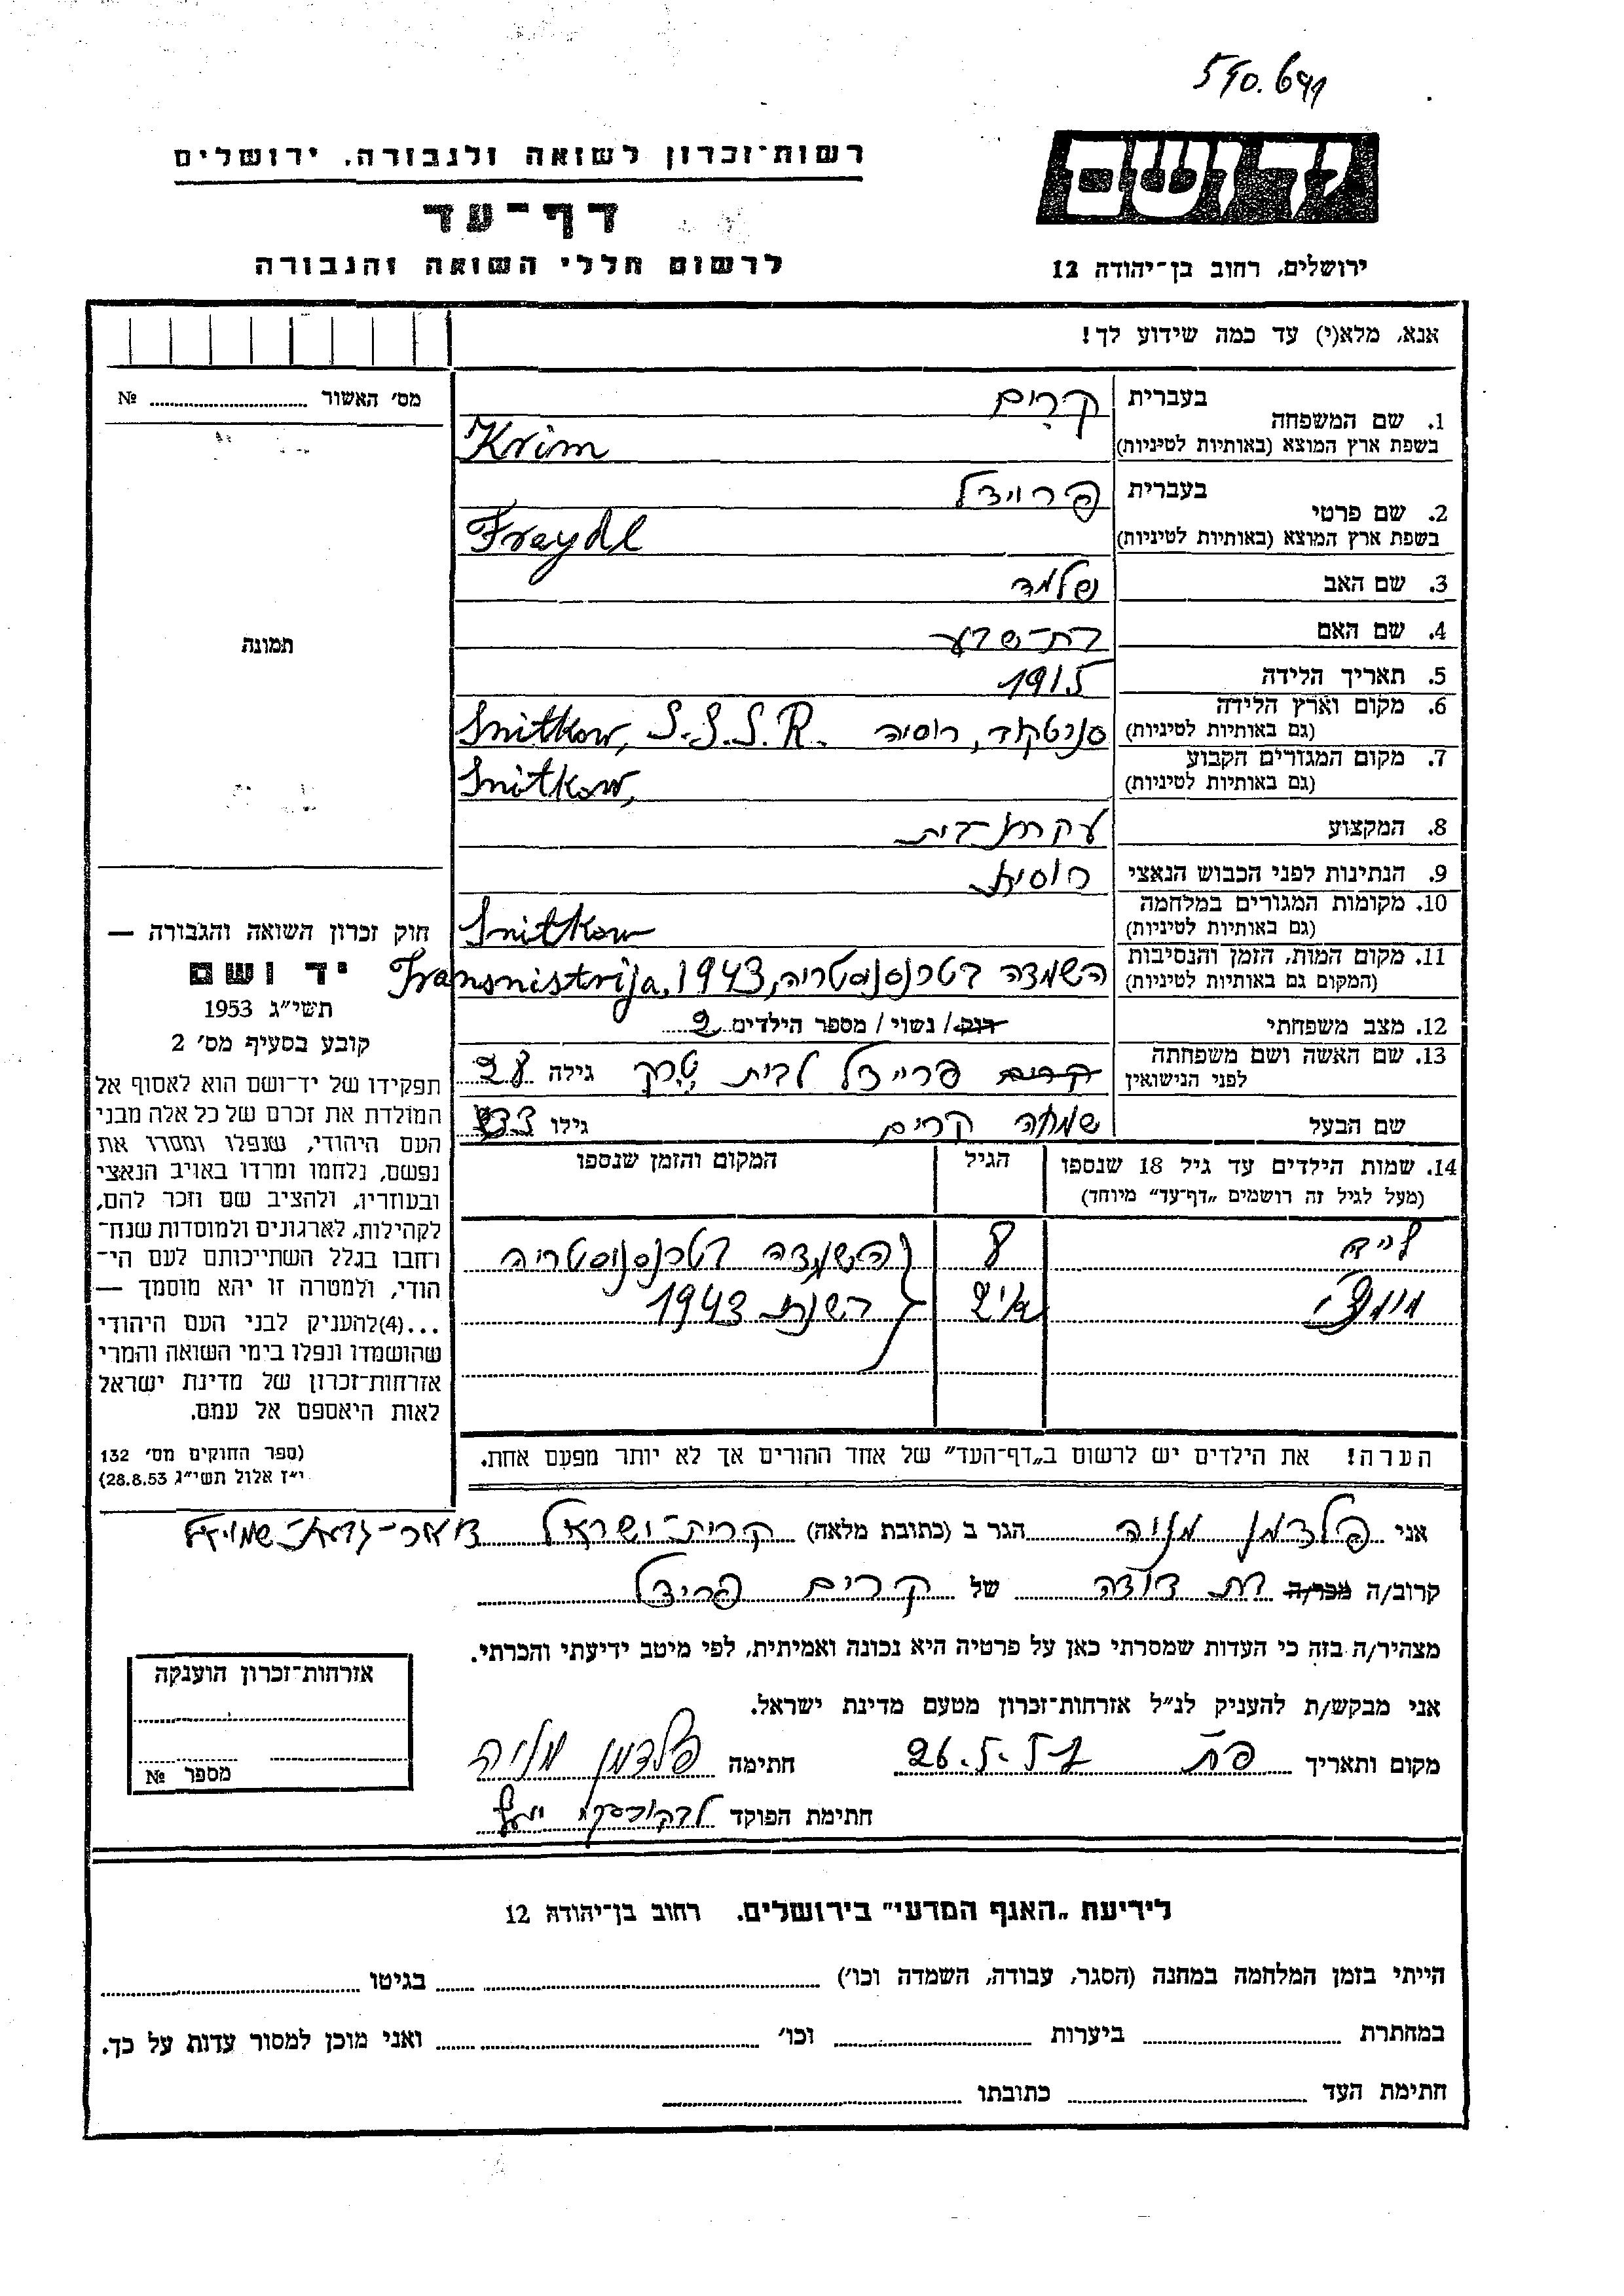 רשות־זכרון לשואה ולגבורה, ירושלים
דף־עד
לרשום חללי השואה והגבורה
יד ושם
ירושלים, רחוב בן־יהודה 12
אנא, מלא(י) עד כמה שידוע לך!
מס' האשור №
1. שם המשפחה בעברית קרים
בשפת ארץ המוצא (באותיות לטיניות) Krim
2. שם פרטי בעברית פרוידל
בשפת ארץ המוצא (באותיות לטיניות) Freydl
3. שם האב שלמה
4. שם האם בת־שבע
5. תאריך הלידה 1915
6. מקום וארץ הלידה
(גם באותיות לטיניות) סניטקוב, רוסיה Snitkow, S.S.S.R.
7. מקום המגורים הקבוע
(גם באותיות לטיניות) Snitkow,
8. המקצוע עקרת־בית
9. הנתינות לפני הכבוש הנאצי רוסית
10. מקומות המגורים במלחמה
(גם באותיות לטיניות) Snitkow
11. מקום המות, הזמן והנסיבות
(המקום גם באותיות לטיניות) השמדה בטרנסניסטריה, 1943, Transnistrija
12. מצב משפחתי רוק / נשוי / מספר הילדים 2
13. שם האשה ושם משפחתה
לפני הנישואין קרים פרייזל לבית גילה 28
שם הבעל שמחה קרים גילו
14. שמות הילדים עד גיל 18 שנספו
(מעל לגיל זה רושמים „דף־עד" מיוחד)
הגיל
המקום והזמן שנספו
8 השמדה בטרנסניסטריה
בשנת 1943
הערה! את הילדים יש לרשום ב„דף־העד" של אחד ההורים אך לא יותר מפעם אחת.
תמונה
חוק זכרון השואה והגבורה —
יד ושם
תשי"ג 1953
קובע בסעיף מס' 2
תפקידו של יד־ושם הוא לאסוף אל
המולדת את זכרם של כל אלה מבני
העם היהודי, שנפלו ומסרו את
נפשם, נלחמו ומרדו באויב הנאצי
ובעוזריו, ולהציב שם וזכר להם,
לקהילות, לארגונים ולמוסדות שנח־
רחבו בגלל השתייכותם לעם הי־
הודי, ולמטרה זו יהא מוסמך —
...(4)להעניק לבני העם היהודי
שהושמדו ונפלו בימי השואה והמרי
אזרחות־זכרון של מדינת ישראל
לאות היאספם אל עמם.
(ספר החוקים מס' 132
י"ז אלול תשי"ג 28.8.53)
אני פלדמן מניה הגר ב (כתובת מלאה) קרית־ישראל דואר
קרוב/ה מכר/ה בת דודה של קרים פריידל
מצהיר/ה בזה כי העדות שמסרתי כאן על פרטיה היא נכונה ואמיתית, לפי מיטב ידיעתי והכרתי.
אני מבקש/ת להעניק לנ"ל אזרחות־זכרון מטעם מדינת ישראל.
מקום ותאריך פת 26.5.57 חתימה פלדמן מניה
חתימת הפוקד
אזרחות־זכרון הוענקה
מספר №
לידיעת „האגף המדעי" בירושלים, רחוב בן־יהודה 12
הייתי בזמן המלחמה במחנה (הסגר, עבודה, השמדה וכו') בגיטו
במחתרת ביערות וכו' ואני מוכן למסור עדות על כך.
חתימת העד כתובתו